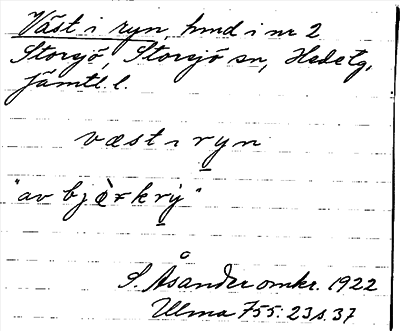 Väst i ryn, hmd i nr 2
Storsjö, Storsjö sn, Hede tg,
Jämtl. l.
væst ı ryn
"av bjὰrkrý"
S. Åsander omkr. 1922
Ulma 755: 23 s. 37